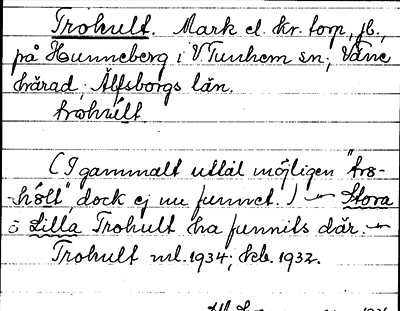 Trohult. Mark el. kr. torp, jb.,
på Hunneberg i V. Tunhem sn; Väne
härad; Älfsborgs län.
trohúlt
(I gammalt uttal möjligen "tro-
-hólt", dock ej nu funnet.) — Stora
o Lilla Trohult ha funnits där. —
Trohult ml. 1934; kb. 1932.